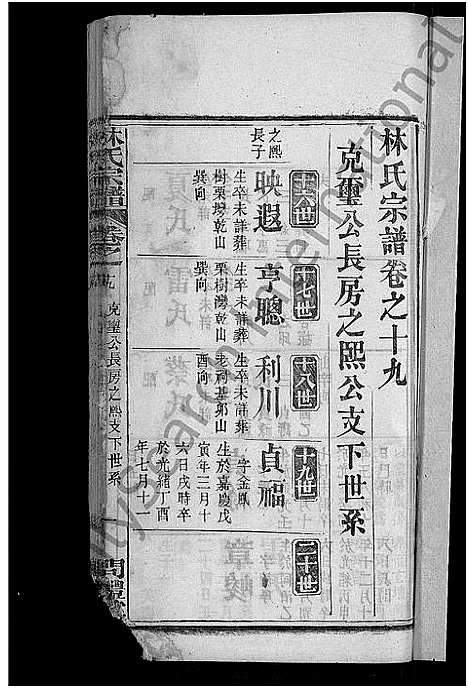 林氏宗譜卷之十九
克璽公長房之熙公支下世系
十六世
十七世
十八世
十九世
二十世
之熙
長子
映遐
生卒未詳葬
樹栗塝乾山
巽向
亨聰
生卒未詳葬
栗樹灣乾山
巽向
利川
生卒未詳葬
老祠基卯山
酉向
貞福
字金鳳
生於嘉慶戊
寅年三月十
六日戌時卒
於光緒丁酉
年七月十一
林氏宗譜
卷之十九
克璽公長房之熙公支下世系